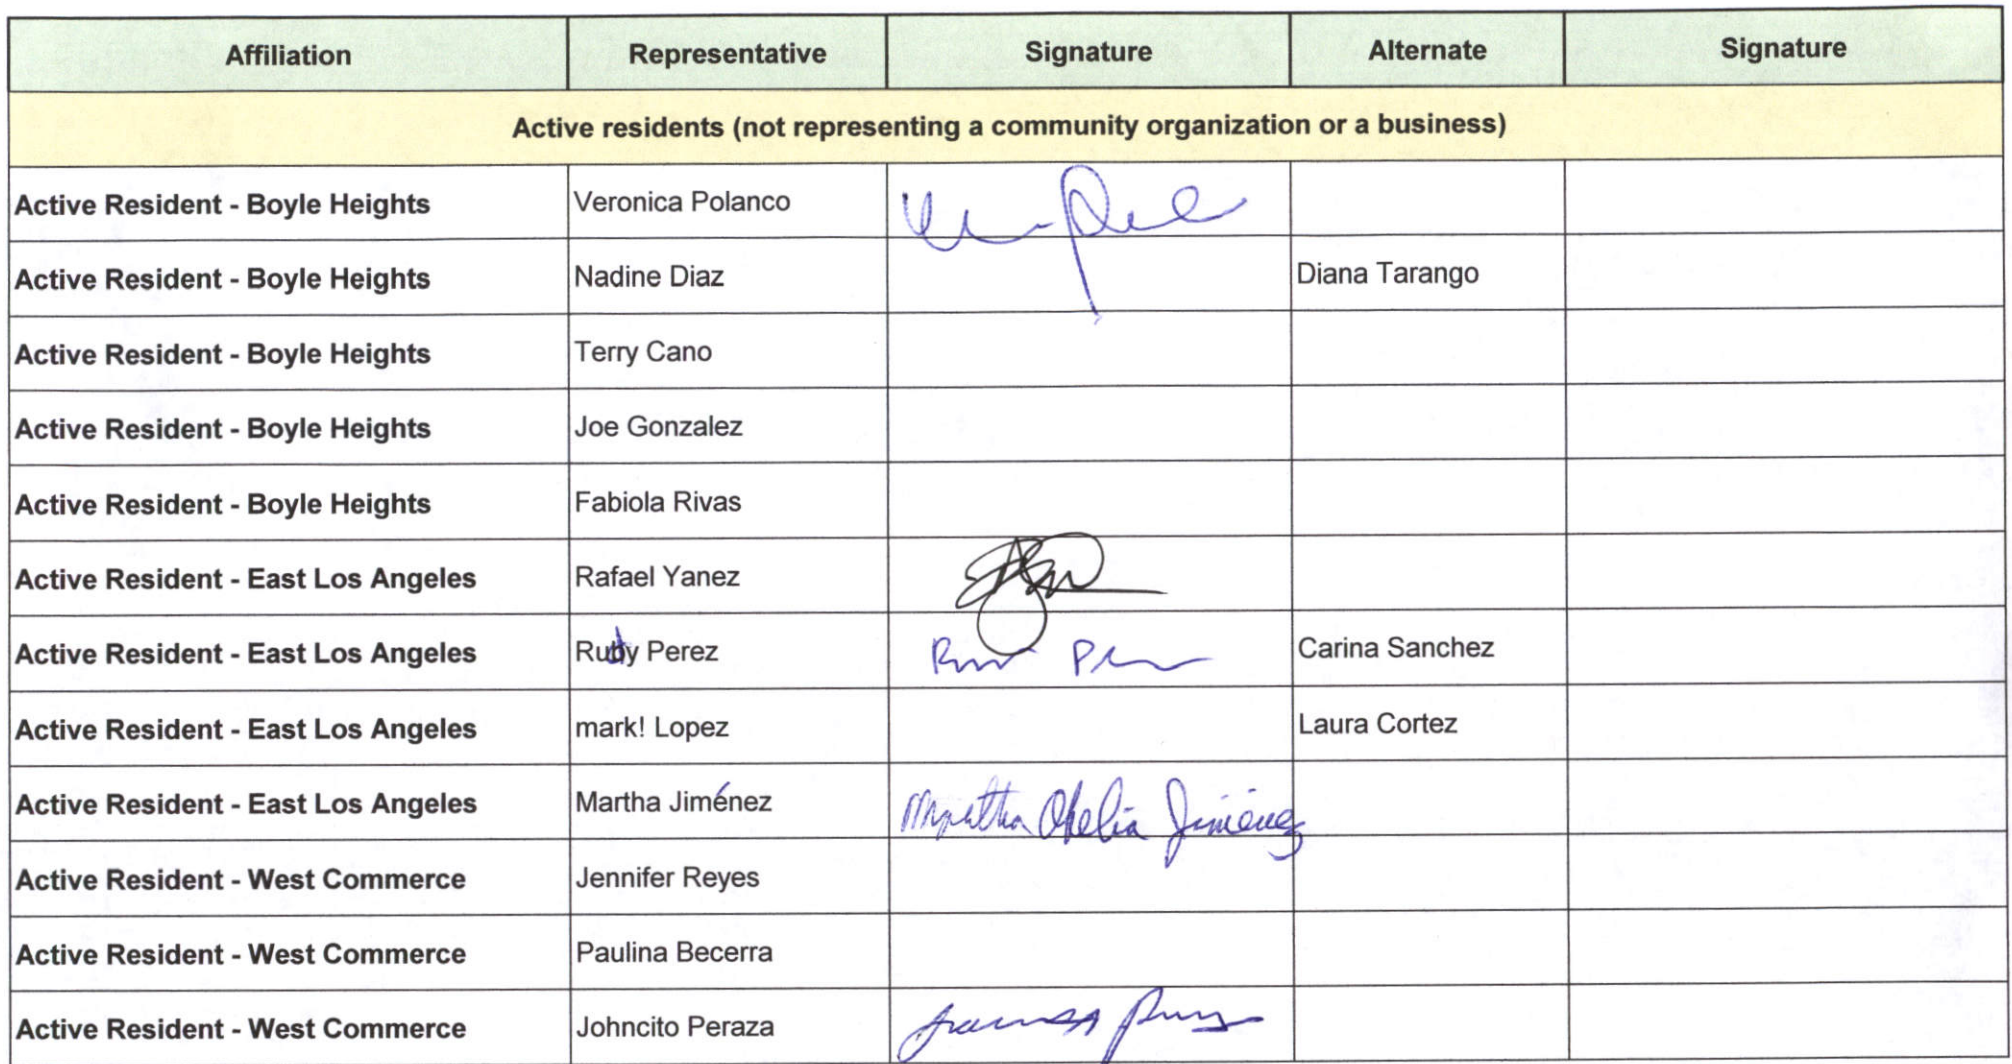 Affiliation Representative Signature Alternate Signature
Active residents (not representing a community organization or a business)
Active Resident - Boyle Heights Veronica Polanco
Active Resident - Boyle Heights Nadine Diaz Diana Tarango
Active Resident - Boyle Heights Terry Cano
Active Resident - Boyle Heights Joe Gonzalez
Active Resident - Boyle Heights Fabiola Rivas
Active Resident - East Los Angeles Rafael Yanez
Active Resident - East Los Angeles Perez Carina Sanchez
Active Resident - East Los Angeles mark! Lopez Laura Cortez
Active Resident - East Los Angeles Martha Jiménez Martha Ofelia Jiménez
Active Resident - West Commerce Jennifer Reyes
Active Resident - West Commerce Paulina Becerra
Active Resident - West Commerce Johncito Peraza